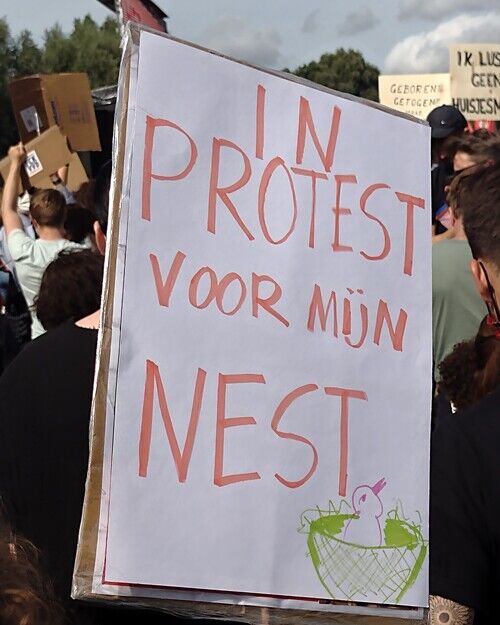 IN
PROTEST
VOOR MIJN
NEST
GEBOREN
GETOGEN
IK LUS
GEEN
HUISJES